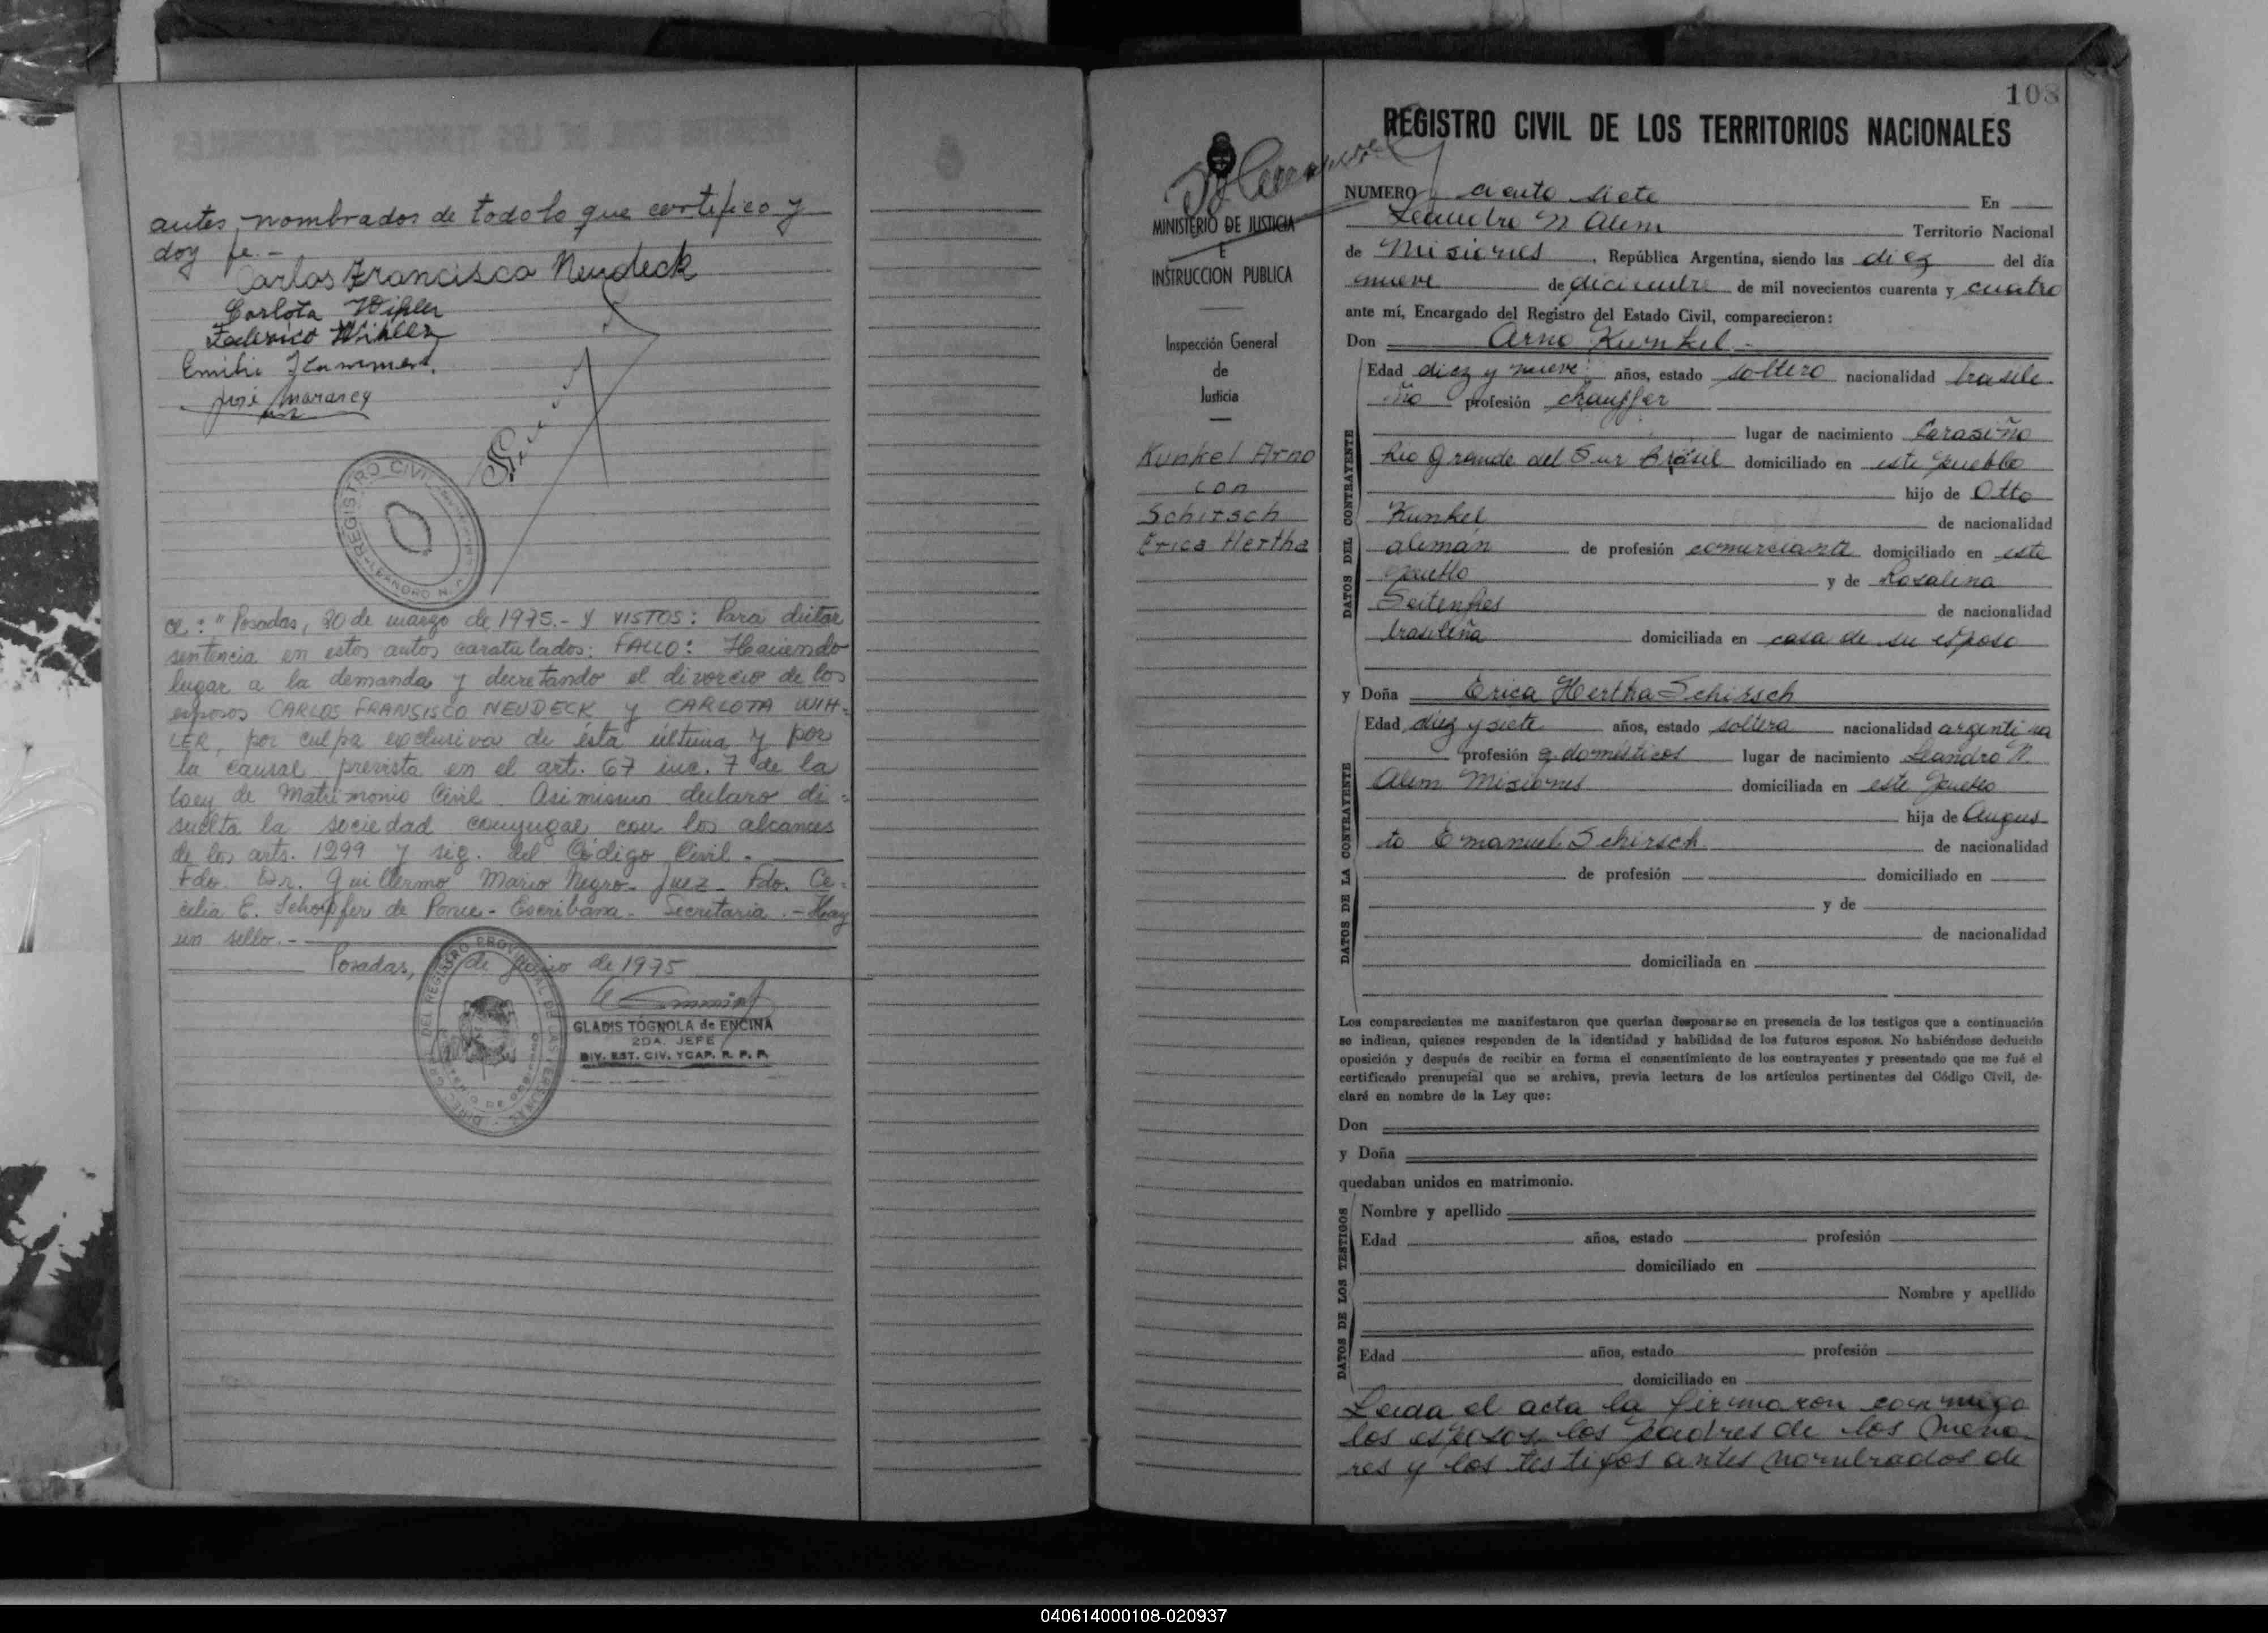 antes nombrados de todo lo que certifico y
doy fe.-
Carlos Francisco Neudeck
Carlota Wihler
Federico Wihler
Emilio
José
REGISTRO CIVIL
LEANDRO N.
"Posadas, 20 de marzo de 1975.- Y VISTOS: Para dictar
sentencia en estos autos caratulados: FALLO: Haciendo
lugar a la demanda y decretando el divorcio de los
esposos CARLOS FRANSISCO NEUDECK y CARLOTA WIH-
LER, por culpa exclusiva de ésta última y por
la causal prevista en el art. 67 inc. 7 de la
Ley de Matrimonio Civil. Asimismo declaro di-
suelta la sociedad conyugal con los alcances
de los arts. 1299 y sig. del Código Civil.-
Fdo. Dr. Guillermo Mario Negro- Juez- Fdo. Ce-
cilia E. Schopfer de Ponce- Escribana- Secretaria.- Hay
un sello.-
Posadas, de junio de 1975
GLADIS TOGNOLA de ENCINA
2DA. JEFE
DIV. EST. CIV. YCAP. R. P. P.
108
REGISTRO CIVIL DE LOS TERRITORIOS NACIONALES
MINISTERIO DE JUSTICIA
E
INSTRUCCION PUBLICA
Inspección General
de
Justicia
Kunkel Arno
con
Schirsch
Erica Hertha
NUMERO ciento siete En
Leandro N Alem Territorio Nacional
de Misiones, República Argentina, siendo las diez del día
nueve de diciembre de mil novecientos cuarenta y cuatro
ante mí, Encargado del Registro del Estado Civil, comparecieron:
Don Arno Kunkel.-
DATOS DEL CONTRAYENTE
Edad diez y nueve años, estado soltero nacionalidad brasile-
ño profesión chauffer
lugar de nacimiento Carasiño
Rio Grande del Sur Brasil domiciliado en este pueblo
hijo de Otto
Kunkel de nacionalidad
alemán de profesión comerciante domiciliado en este
pueblo y de Rosalina
Seitenfies de nacionalidad
brasileña domiciliada en casa de su esposo
y Doña Erica Hertha Schirsch
DATOS DE LA CONTRAYENTE
Edad diez y siete años, estado soltera nacionalidad argentina
profesión q. domésticos lugar de nacimiento Leandro N.
Alem Misiones domiciliada en este pueblo
hija de Augus
to Emanuel Schirsch de nacionalidad
de profesión domiciliado en
y de
de nacionalidad
domiciliada en
Los comparecientes me manifestaron que querían desposarse en presencia de los testigos que a continuación
se indican, quienes responden de la identidad y habilidad de los futuros esposos. No habiéndose deducido
oposición y después de recibir en forma el consentimiento de los contrayentes y presentado que me fué el
certificado prenupcial que se archiva, previa lectura de los artículos pertinentes del Código Civil, de-
claré en nombre de la Ley que:
Don
y Doña
quedaban unidos en matrimonio.
DATOS DE LOS TESTIGOS
Nombre y apellido
Edad años, estado profesión
domiciliado en
Nombre y apellido
Edad años, estado profesión
domiciliado en
Leida el acta la firmaron conmigo
los esposos, los padres de los meno-
res y los testigos antes nombrados de
040614000108-020937